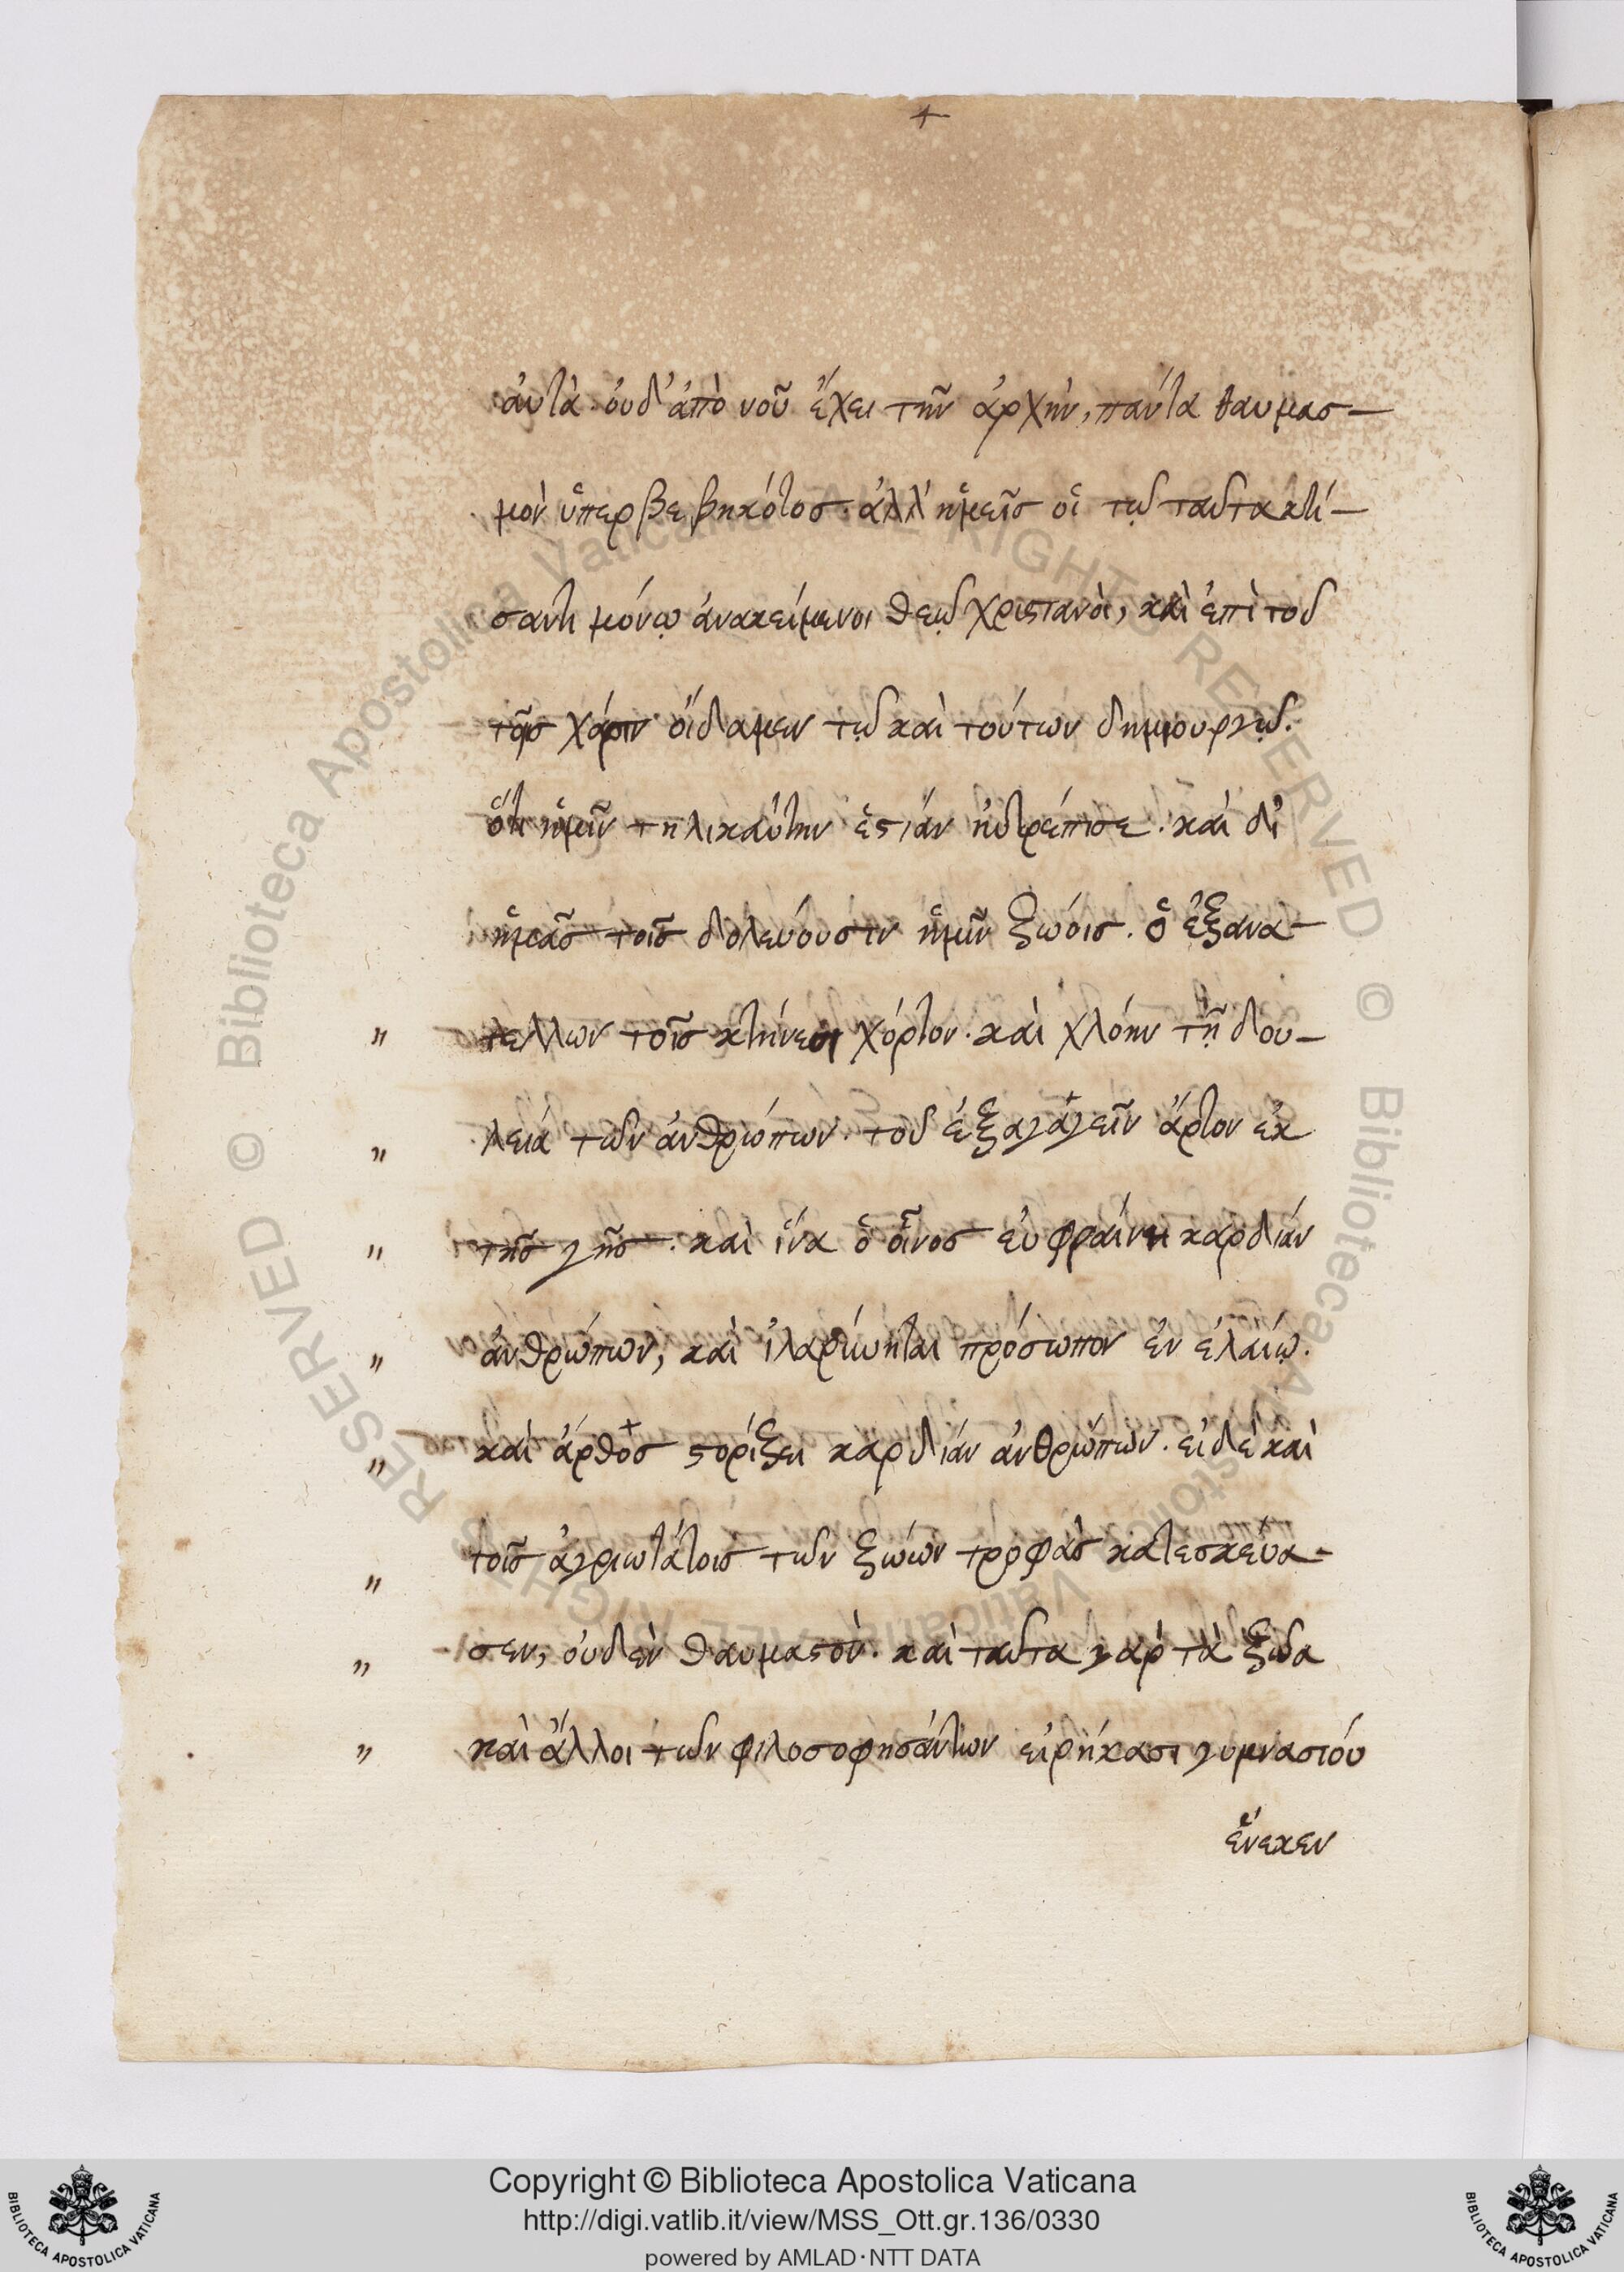 +
ἀυτὰ· ὀυδ' ἀπὸ νοῦ ἔχει τῆν ἀρχὴν, πάντα θαυμασ-
μὸν ὑπερβεβηκότος· ἀλλ' ἡμεῖς οἱ τῷ ταῦτα κτί-
σαντι μόνῳ ἀνακείμενοι θεῷ χριστανὸι, καὶ ἐπὶ τοῦ
τοῖς χάριν ὄιδαμεν τῷ καὶ τούτων δημιουργῷ.
ὅτι ἡμῖν τηλικαύτην ἑστιάν ηὐτρέπισε· καὶ δι'
ἡμᾶς τοῖς δολευόυσιν ἡμῖν ζωόις. ὁ ἐξανα-
" τελλων τοῖς κτήνεσι χόρτον· καὶ χλόην τῇ δου-
" λειά τῶν ἀνθρώπων· τοῦ ἐξαγαγεῖν ἄρτον ἐκ
" τῆς γῆς· καὶ ἵνα ὁ οἶνος ἐυφράινει καρδιάν
" ἀνθρώπων, καὶ ἱλαρύνηται πρόσωπον ἐν ἐλαίῳ.
" καὶ ἄρθος στορίξει καρδιάν ἀνθρώπων. εἰ δὲ καὶ
" τοῖς ἀγριωτάτοις τῶν ζωίων τροφὰς κατεσκεύα-
" σεν, ὀυδὲν θαυμαστὸν. καὶ ταῦτα γαρ τὰ ζῶα
" καὶ ἄλλοι τῶν φιλοσοφησάντων εἰρήκασι γυμνασιόυ
ἕνεκεν
Copyright © Biblioteca Apostolica Vaticana
http://digi.vatlib.it/view/MSS_Ott.gr.136/0330
powered by AMLAD·NTT DATA
BIBLIOTECA APOSTOLICA VATICANA
BIBLIOTECA APOSTOLICA VATICANA
© Biblioteca Apostolica Vaticana ALL RIGHTS RESERVED
© Biblioteca Apostolica Vaticana ALL RIGHTS RESERVED